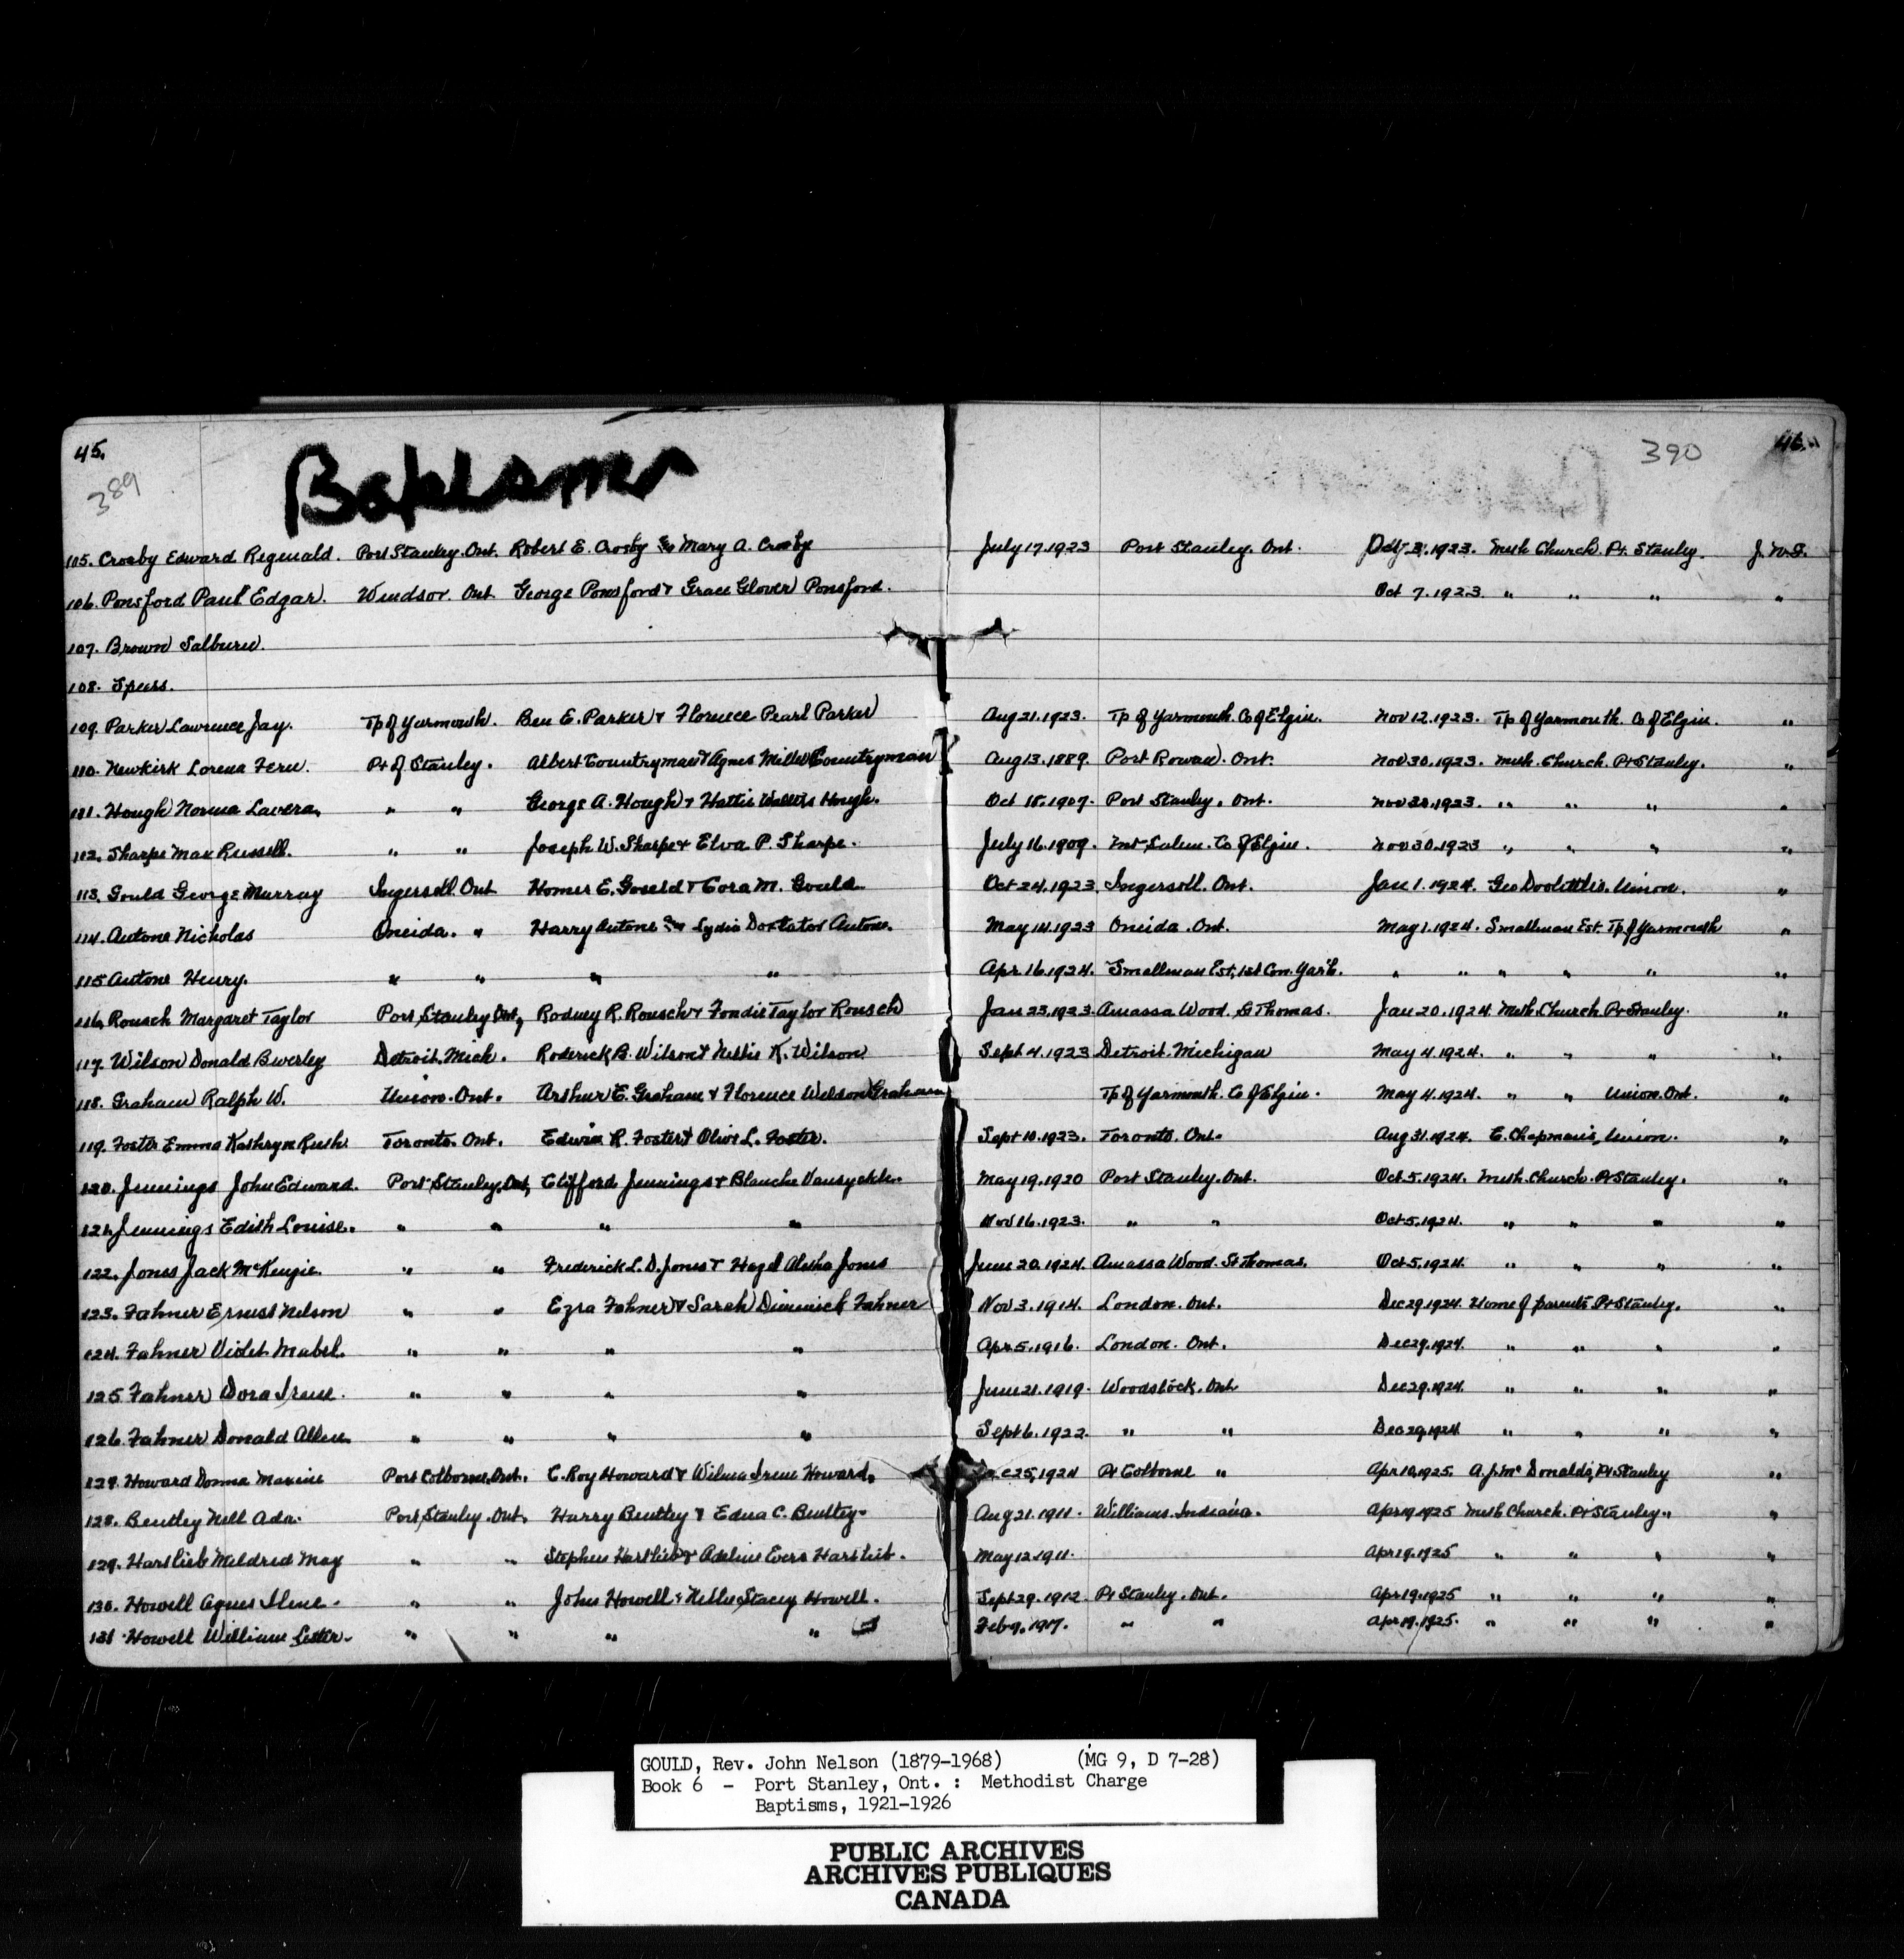 45.
389
Baptisms
390
46.
105. Crosby Edward Reginald. Port Stanley. Ont. Robert E. Crosby & Mary A. Crosby July 17.1923 Port Stanley. Ont. Oct. 3.1923. Meth Church. Pt. Stanley. J.N.G.
106. Ponsford Paul Edgar. Windsor. Ont George Ponsford & Grace Glover Ponsford. Oct 7.1923. " " " "
107. Brown
108. Spears.
109. Parker Lawrence Jay. Tp of Yarmouth. Ben E. Parker & Florence Pearl Parker Aug 21.1923. Tp of Yarmouth. Co of Elgin. Nov 12.1923. Tp of Yarmouth. Co of Elgin. "
110. Newkirk Lorena Fern. Pt of Stanley. Albert Countryman & Agnes Miller Countryman Aug 13.1889. Port Rowan. Ont. Nov 30.1923. Meth. Church. Pt Stanley. "
111. Hough Norma Lavera. " " George A. Hough & Hattie Hough. Oct 18.1907. Port Stanley. Ont. Nov 30.1923. " " " "
112. Sharpe Max Russell. " " Joseph W. Sharpe & Elva P. Sharpe. July 16.1909. Mt Salem. Co of Elgin. Nov 30.1923 " " " "
113. Gould George Murray Ingersoll. Ont Homer E. Gould & Cora M. Gould Oct 24.1923 Ingersoll. Ont. Jan 1.1924. Geo Doolittle's. Union. "
114. Antone Nicholas Oneida. " Harry Antone & Lydia Doxtator Antone. May 14.1923 Oneida. Ont. May 1.1924. Smallman Est. Tp of Yarmouth "
115 Antone Henry. " " " " Apr 16.1924. Smallman Est, 1st Con. Yar'th. " " " " " "
116. Rousch Margaret Taylor Port Stanley Ont, Rodney R. Rousch & Taylor Rousch Jan 23.1923 Amassa Wood. St Thomas. Jan 20.1924. Meth. Church Pt Stanley. "
117. Wilson Donald Bwerley Detroit. Mich. Roderick B. Wilson & Nellie K. Wilson Sept 4.1923 Detroit. Michigan May 4.1924. " " " "
118. Graham Ralph W. Union. Ont. Arthur E. Graham & Florence Welson Graham Tp of Yarmouth. Co of Elgin. May 4.1924. " " Union. Ont. "
119. Foster Emma Kathryn Ruth. Toronto. Ont. Edwin R. Foster & Olive L. Foster. Sept 10.1923. Toronto. Ont. Aug 31.1924. E. Chapman's, Union. "
120. Jennings John Edward. Port Stanley. Ont, Clifford Jennings & Blanche Vansyckle. May 19.1920 Port Stanley. Ont. Oct. 5.1924. Meth. Church. Pt Stanley. "
121. Jennings Edith Louise. " " " " Nov 16.1923. " " Oct 5.1924. " " " "
122. Jones Jack McKenzie. " " Frederick L. D. Jones & Hazel Aletha Jones June 20.1924. Amassa Wood. St Thomas. Oct 5.1924. " " " "
123. Fahner Ernest Nelson " " Ezra Fahner & Sarah Dimmick Fahner Nov 3.1914. London. Ont. Dec 29.1924. Home of parents Pt Stanley. "
124. Fahner Violet Mabel. " " " " Apr 5.1916. London. Ont. Dec 29.1924. " " " "
125 Fahner Dora Irene. " " " " June 21.1919. Woodstock. Ont Dec 29.1924. " " " "
126. Fahner Donald Allen " " " " Sept 6.1922. " " Dec 29.1924 " " " "
129. Howard Donna Maxine Port Colborne. Ont. C. Roy Howard & Wilma Irene Howard. 25,1924 Pt Colborne " Apr 10,1925. A. J. McDonalds, Pt Stanley "
128. Bentley Nell Ada. Port Stanley. Ont. Harry Bentley & Edna C. Bentley. Aug 21.1911. Williams. Indiana. Apr 19 1925 Meth Church. Pt Stanley. "
129. Hartlieb Mildred May " " Stephen Hartlieb & Adeline Evers Hartlieb. May 12.1911. Apr 19.1925 " " " "
130. Howell Agnes Ilene. " " John Howell & Nellie Stacey Howell. Sept 29.1912. Pt Stanley. Ont. Apr 19.1925 " " " "
131 Howell William Lester. " " " " Feb 9.1917. " " Apr 19.1925. " " " "
GOULD, Rev. John Nelson (1879-1968) (MG 9, D 7-28)
Book 6 - Port Stanley, Ont. : Methodist Charge
Baptisms, 1921-1926
PUBLIC ARCHIVES
ARCHIVES PUBLIQUES
CANADA